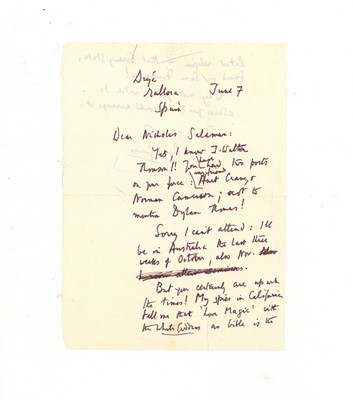 Deyá
Mallorca June 7
Spain
Dear Nicholas Salaman:
Yes, I know J. Walter
Thomson!! You have two poets
on your force: Hart Crane,
Norman Cameron; not to
mention Dylan Thomas!
Sorry I can't attend: I'll
be in Australia the last three
weeks of October, also Nov.
But you certainly are up with
the times! My spies in California
tell me that 'Love Magic' with
the White Goddess as bible is the